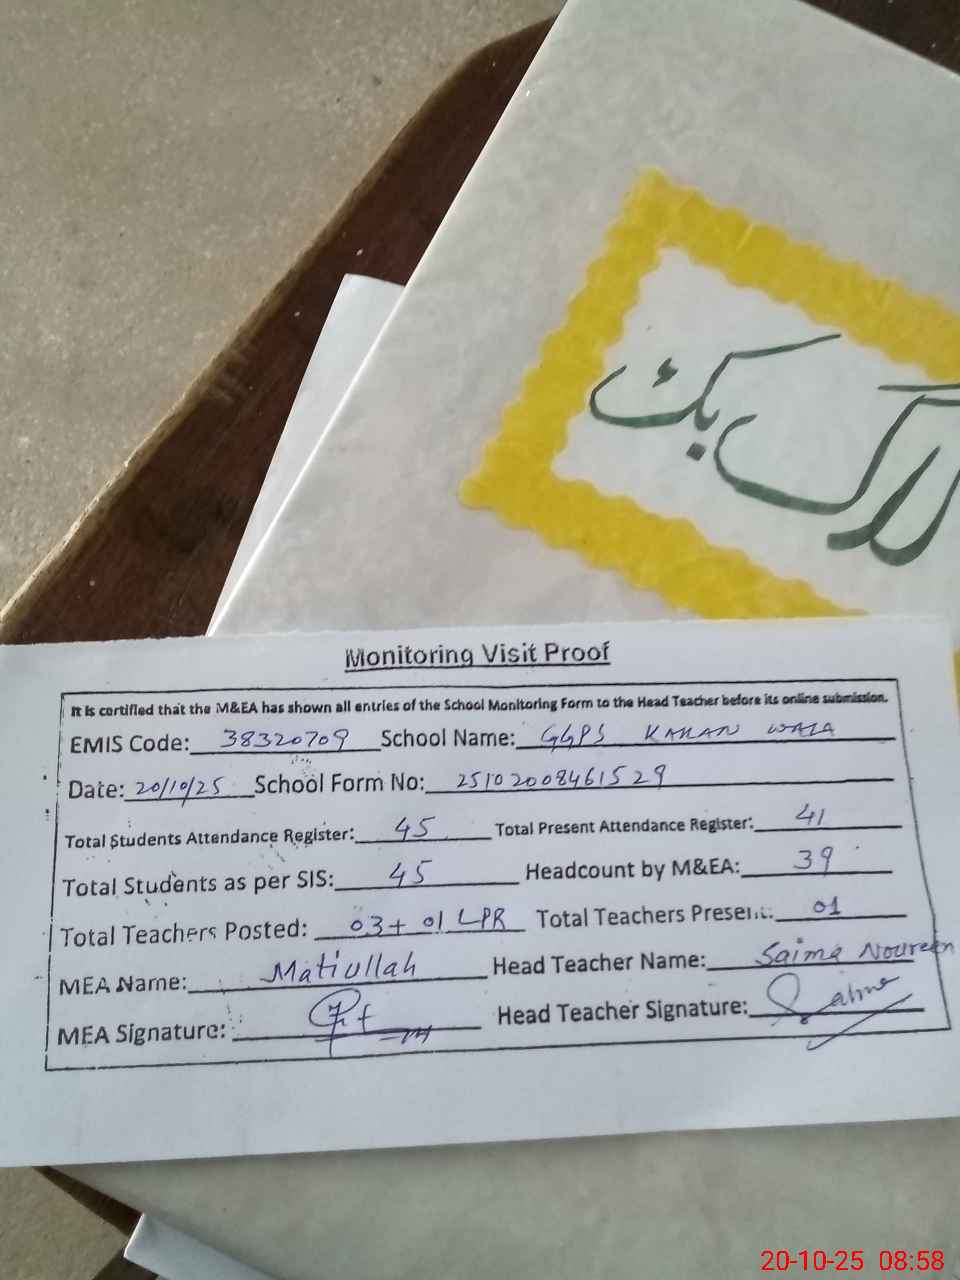 لاگ بک
Monitoring Visit Proof
It is certified that the M&EA has shown all entries of the School Monitoring Form to the Head Teacher before its online submission.
EMIS Code: 38320709 School Name: GGPS KAKAN WALA
Date: 20/10/25 School Form No: 25102008461529
Total Students Attendance Register: 45 Total Present Attendance Register: 41
Total Students as per SIS: 45 Headcount by M&EA: 39
Total Teachers Posted: 03+01 LPR Total Teachers Present: 01
MEA Name: Matiullah Head Teacher Name: Saima Noureen
MEA Signature: Head Teacher Signature:
20-10-25 08:58